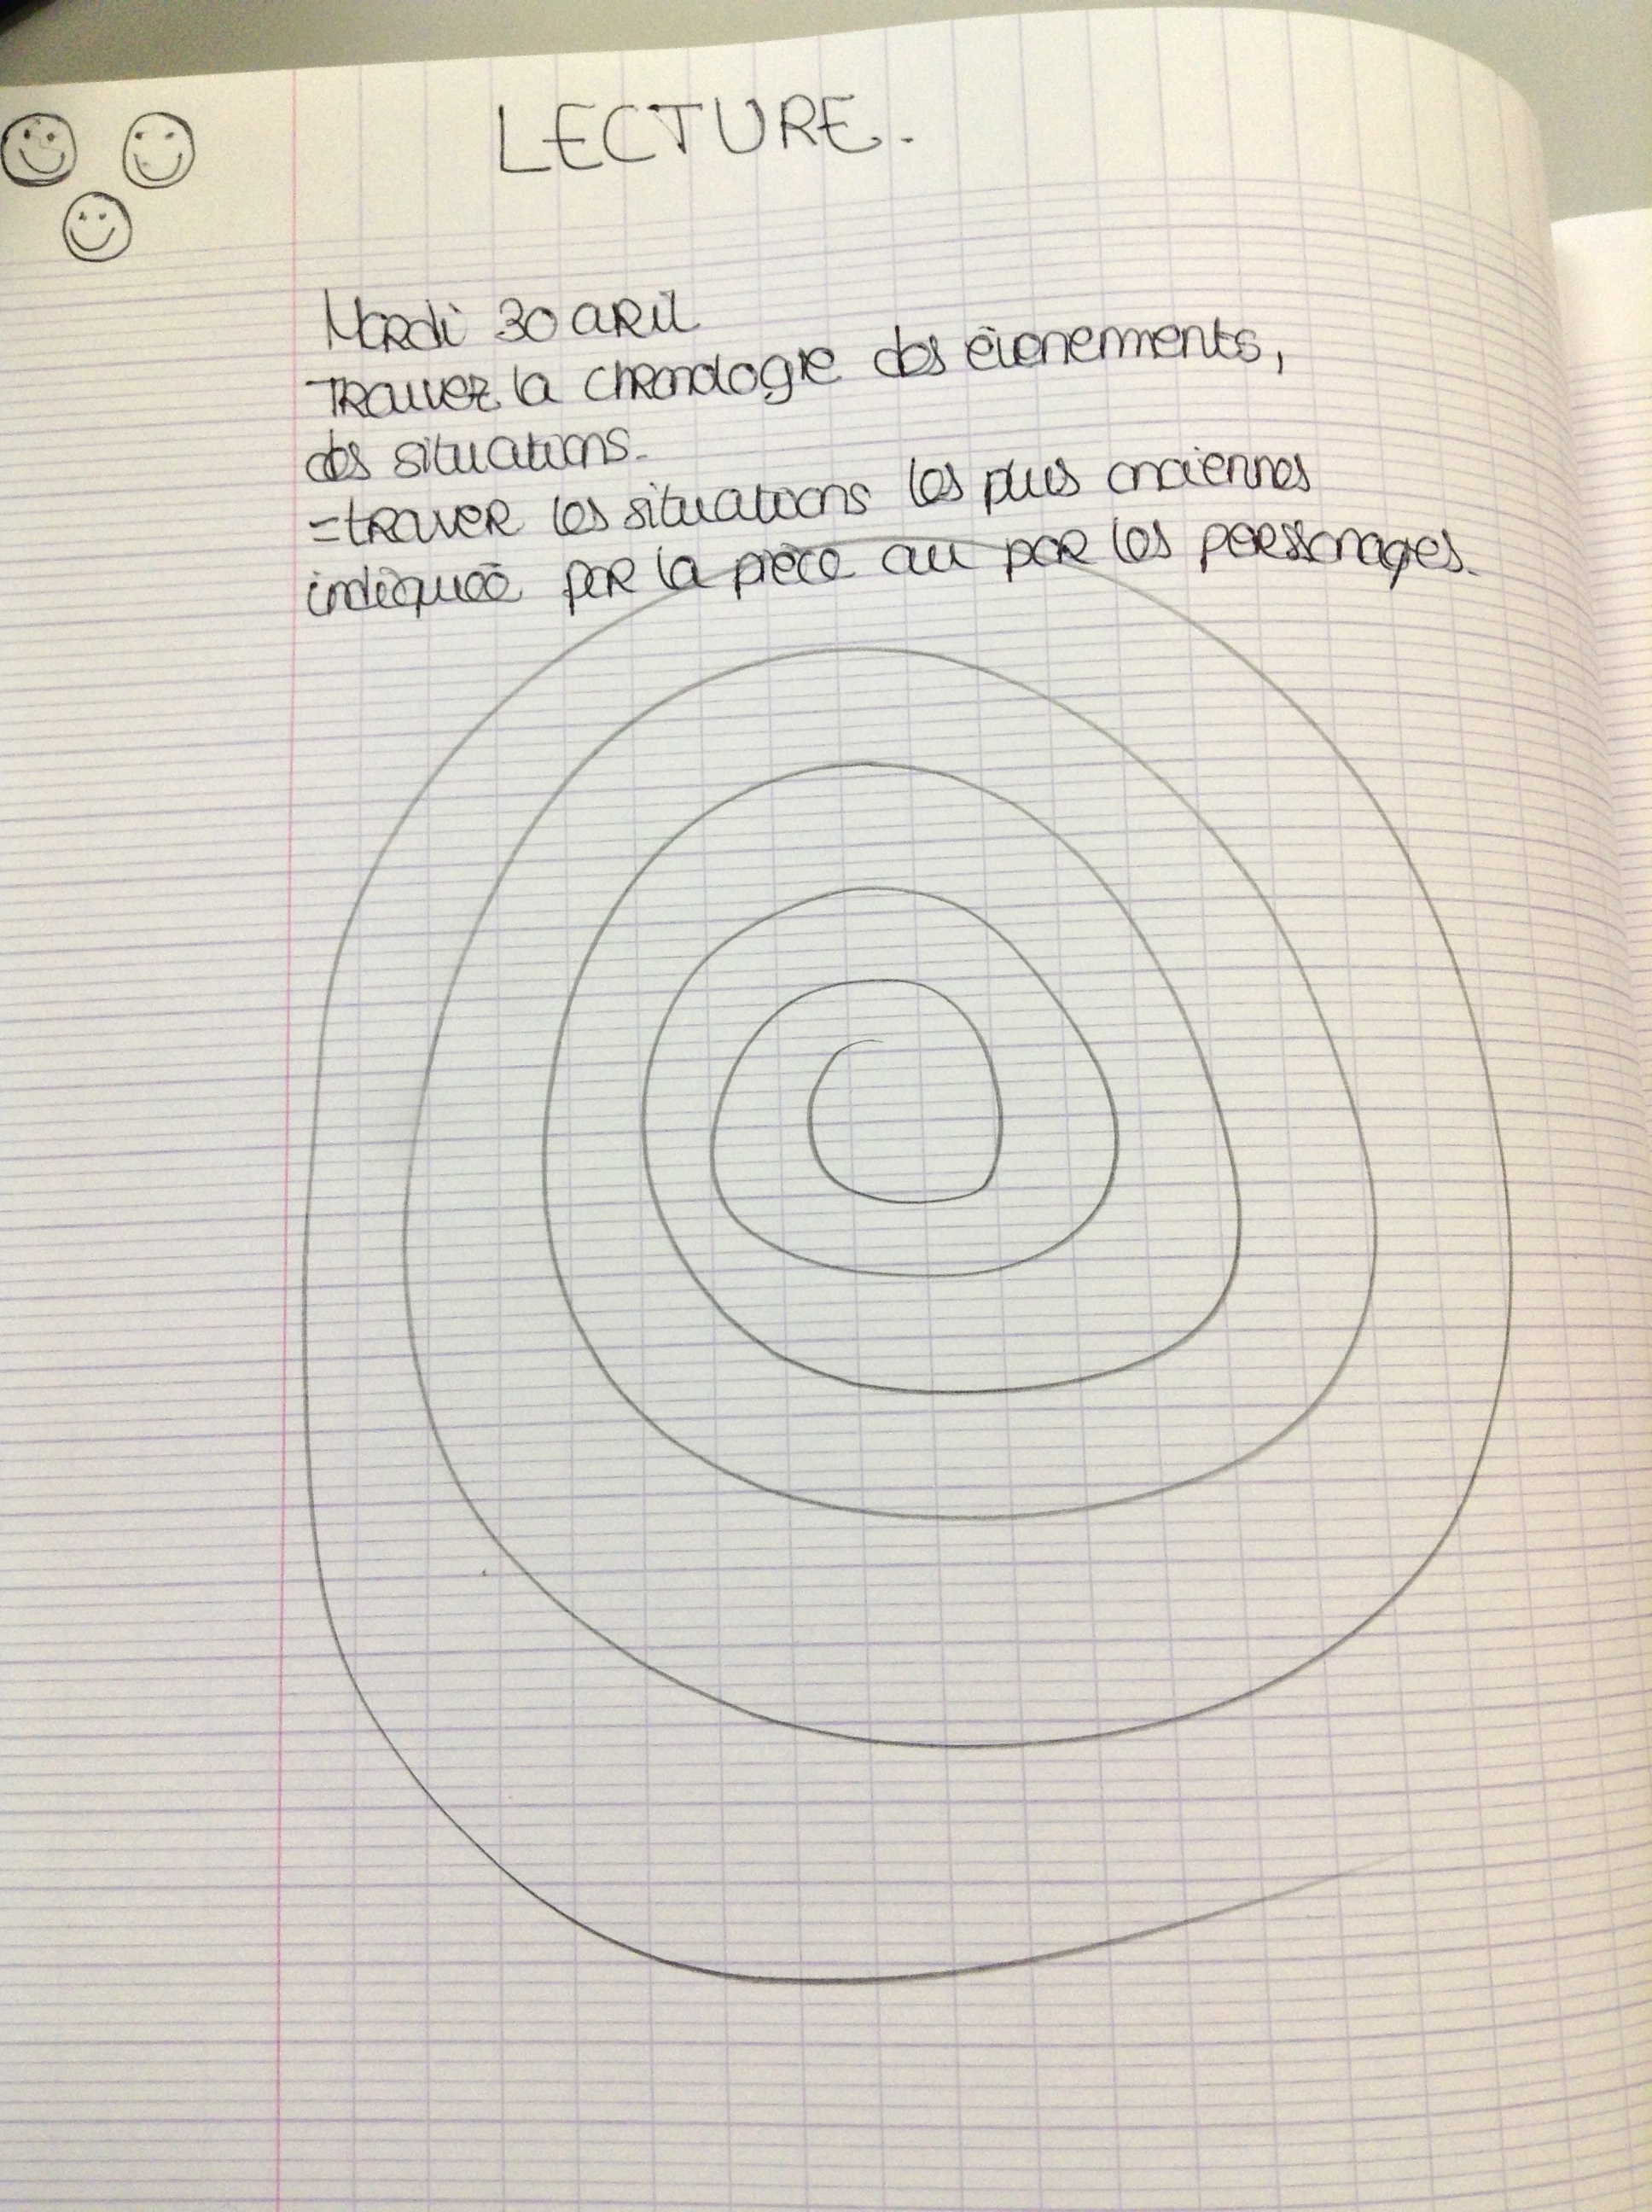 LECTURE.
Mardi 30 aril
Trouvez la chronologie des évenements,
des situations.
=trouver les situations les plus anciennes
indiquée par la pièce ou par les personages.